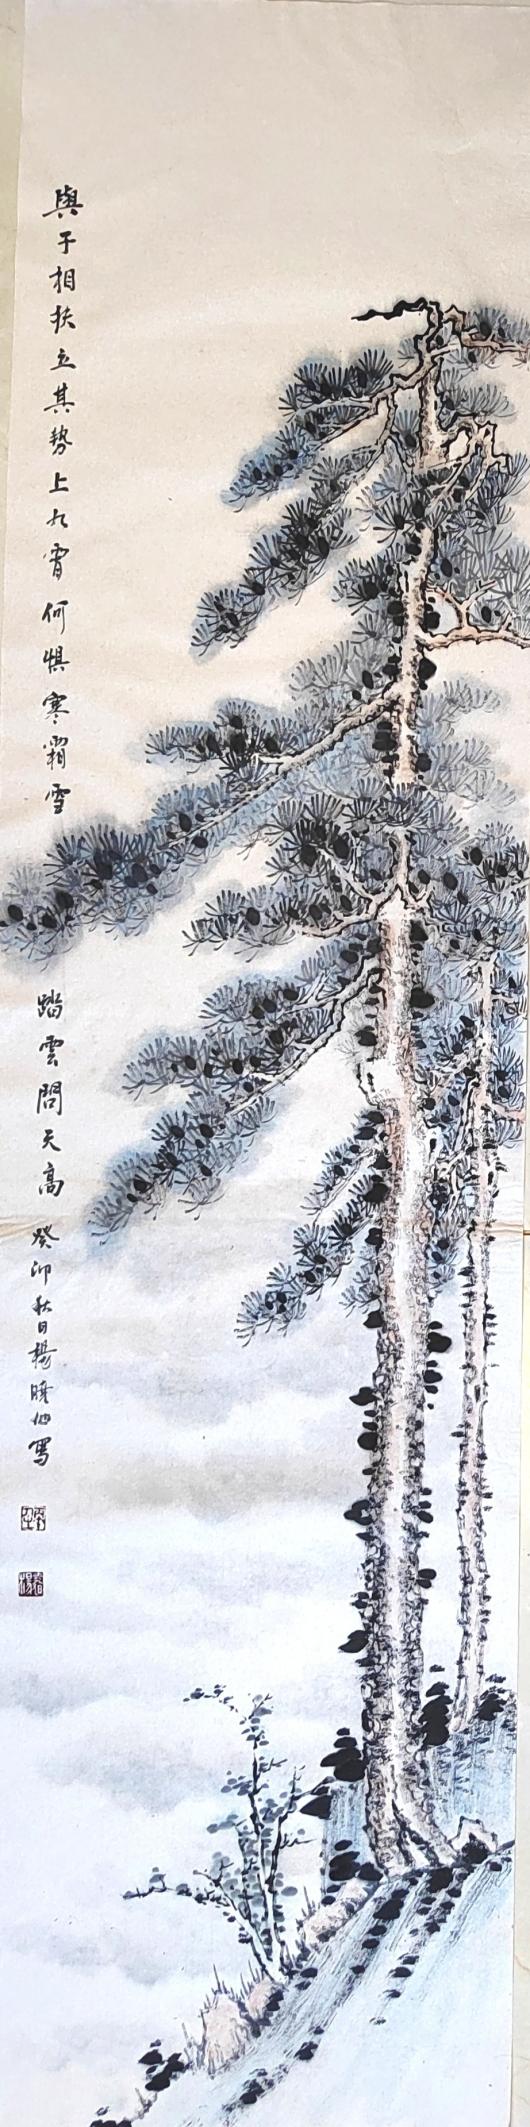 與子相扶立其勢上九霄何懼寒霜雪
踏雲問天高癸卯秋日楊曉灿寫